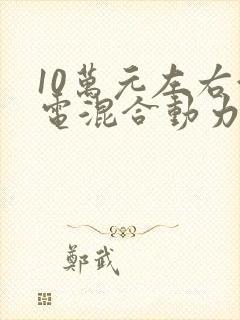 10萬元左右
電混合動力
鄭武